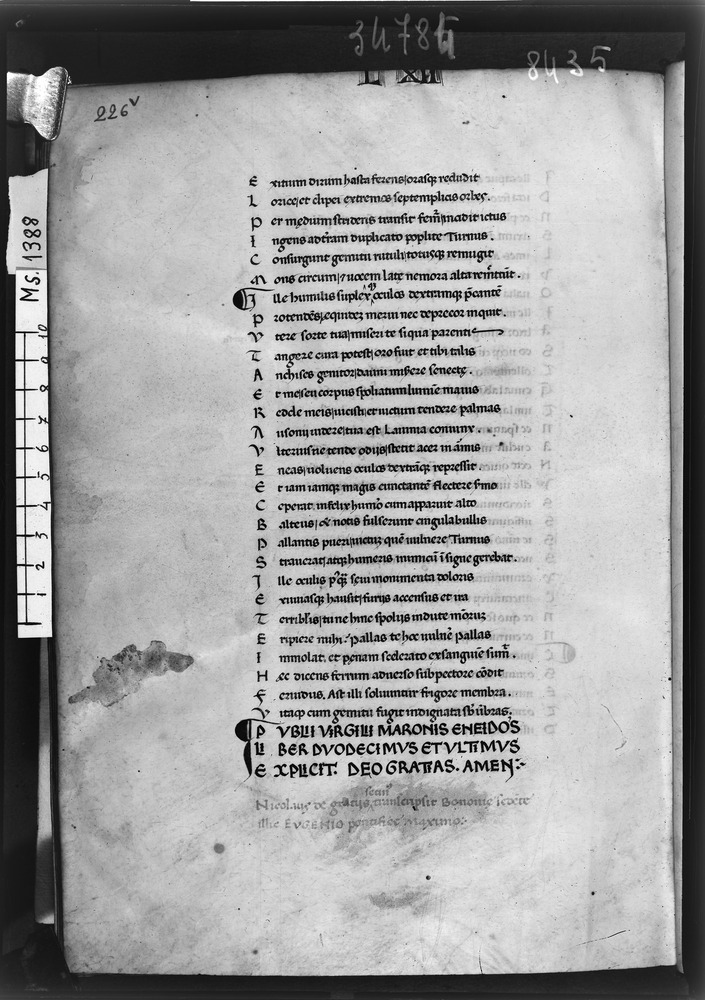 34785
8435
L XII
226v
MS. 1388
10 9 8 7 6 5 4 3 2 1
E xitium dirum hasta ferens orasq recludit
L orice et clipei extremos septemplicis orbes.
P er medium stridens transit fem̄ incidit ictus
I ngens ad t̄ram duplicato poplite Turnus.
C onsurgunt gemitu rutuli totusq remugit
M ons circum / 7 uocem late nemora alta rem̄tūt.
I lle humilis suplex oculos dextramq p̄cantē
P rotendēs equidez merui nec deprecor inquit.
V tere sorte tua miseri te siqua parentis
T angere cura potest oro fuit et tibi talis
A nchises genitor dauni miserere senecte.
E t me seu corpus spoliatum lumine mauis
R edde meis uicisti et uictum tendere palmas
A usonij uidere tua est Lauinia coniunx.
V lterius ne tende odijs stetit acer in armis
E neas uoluens oculos dextrāq repressit.
E t iam iamq magis cunctantē flectere s̄mo
C eperat infelix humo cum apparuit alto
B alteus / & notis fulserunt cingula bullis
P allantis pueri uictuz quē uulnere Turnus
S trauerat atq humeris inimicū īsigne gerebat.
I lle oculis p̄q seui monumenta doloris
E xuuiasq hausit furijs accensus et ira
T erribilis tu ne hinc spolijs indute meoruz
E ripiere mihi? pallas te hoc uulnē pallas
I mmolat. et penam scelerato ex sanguine sum̄.
H ec dicens ferrum aduerso sub pectore cōdit
F eruidus. Ast illi soluuntur frigore membra.
V itaq cum gemitu fugit indignata sb ūbras.
P VBLII VIRGILII MARONIS ENEIDOS
LI BER DVODECIMVS ET VLTIMVS
E XPLICIT. DEO GRATIAS. AMEN:-
Nicolaus de transcripsit Bononie sedete
illic EVGENIO pontifice maximo:-